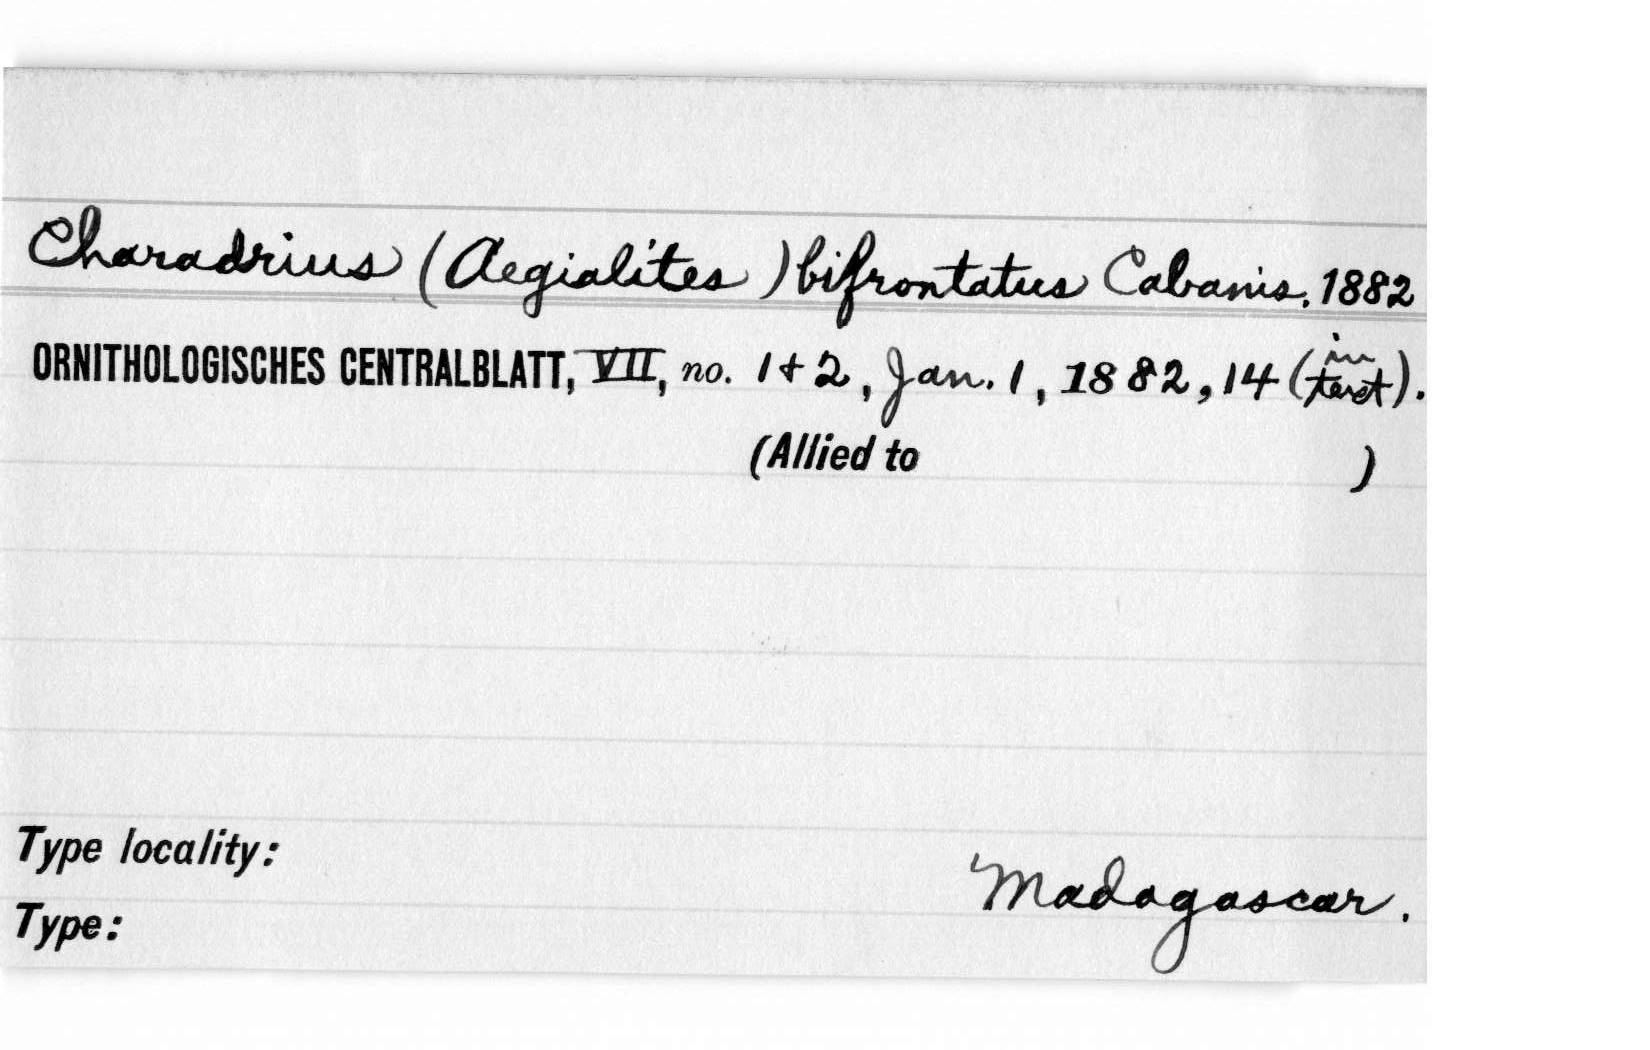 Charadrius (Aegialites) bifrontatus Cabanis, 1882
ORNITHOLOGISCHES CENTRALBLATT, VII, no. 1+2, Jan. 1, 1882, 14 (in text).
(Allied to )
Type locality:
Madagascar.
Type: